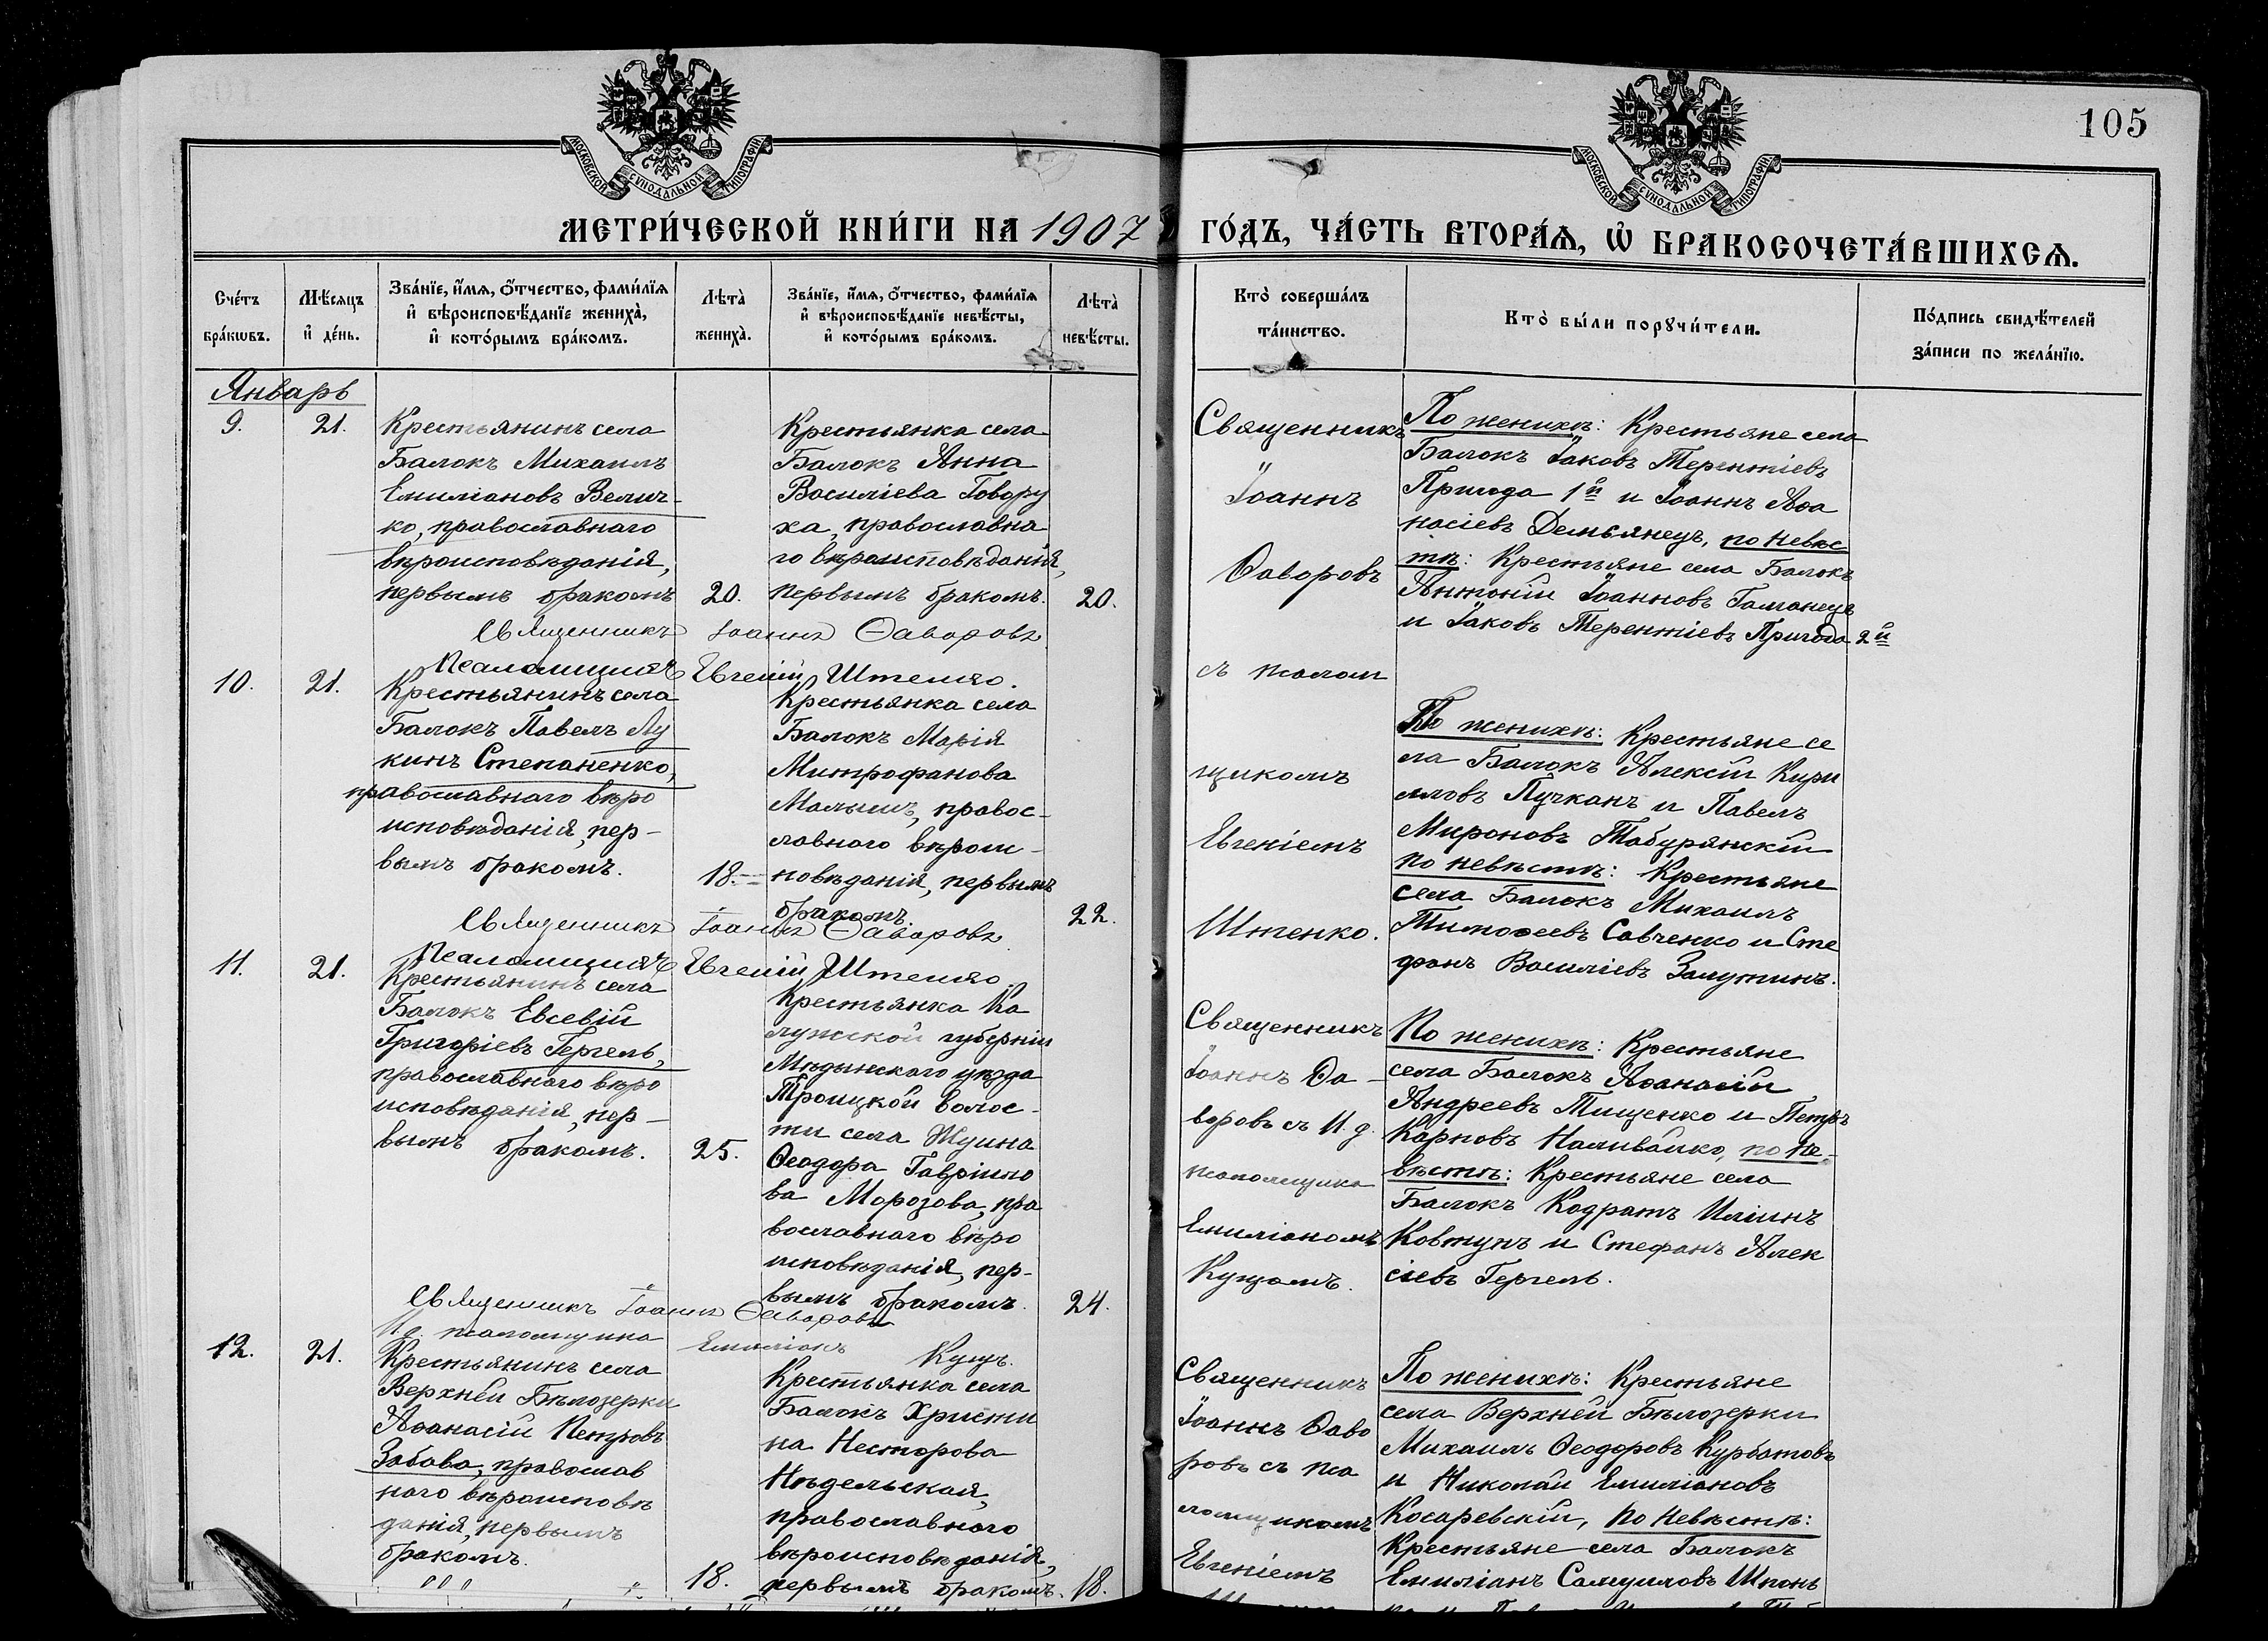 105
МОСКОВСКОЙ СѴНОДАЛЬНОЙ ТИПОГРАФІИ
МОСКОВСКОЙ СѴНОДАЛЬНОЙ ТИПОГРАФІИ
МЕТРИ́ЧЕСКОЙ КНИ́ГИ НА 1907 ГО́ДЪ, ЧА́СТЬ ВТОРА́Ѧ, Ѡ҆ БРАКОСОЧЕТА́ВШИХСѦ.
Сче́тъ
бра́кѡвъ.
Мѣ́сяцъ
и҆ де́нь.
Зва́нїе, и҆́мѧ, ѻ҆́тчество, фами́лїѧ
и҆ вѣроисповѣ́данїе жениха̀,
и҆ кото́рымъ бра́комъ.
Лѣта̀
жениха̀.
Зва́нїе, и҆́мѧ, ѻ҆́тчество, фами́лїѧ
и҆ вѣроисповѣ́данїе невѣ́сты,
и҆ кото́рымъ бра́комъ.
Лѣта̀
невѣ́сты.
Кто̀ соверша́лъ
та́инство.
Кто̀ бы́ли порꙋчи́тели.
По́дпись свидѣ́телей
за́писи по жела́нїю.
Январь
9.
21.
Крестьянинъ села
Балокъ Михаилъ
Емиліановъ Велич-
ко, православнаго
вѣроисповѣданія,
первымъ бракомъ
20.
Крестьянка села
Балокъ Анна
Василіева Говору
ха, православна
го вѣроисповѣданія,
первымъ бракомъ.
20.
Священникъ Іоаннъ Ѳаворовъ
Псаломщикъ Евгеній Штенко.
Священникъ
Іоаннъ
Ѳаворовъ
съ псалом
щикомъ
Евгеніемъ
Штенко.
По женихѣ: Крестьяне села
Балокъ Іаковъ Терентіевъ
Пригода 1й и Іоаннъ Аѳа
насіевъ Демьянецъ, по невѣс
тѣ: Крестьяне села Балокъ
Антоній Іоанновъ Гаманецъ
и Іаковъ Терентіевъ Пригода 2й
10.
21.
Крестьянинъ села
Балокъ Павелъ Лу
кинъ Степаненко,
православнаго вѣро
исповѣданія, пер-
вымъ бракомъ.
18.
Крестьянка села
Балокъ Марія
Митрофанова
Малышъ, правос-
лавнаго вѣроис-
повѣданія, первымъ
бракомъ.
22.
Священникъ Іоаннъ Ѳаворовъ
Псаломщикъ Евгеній Штенко
По женихѣ: Крестьяне се
ла Балокъ Алексій Кири
лловъ Пучканъ и Павелъ
Мироновъ Табурянскій
по невѣстѣ: Крестьяне
села Балокъ Михаилъ
Тимоѳеевъ Савченко и Сте
фанъ Василіевъ Залутинъ.
11.
21.
Крестьянинъ села
Балокъ Евсевій
Григоріевъ Гергель,
православнаго вѣро
исповѣданія, пер-
вымъ бракомъ.
25.
Крестьянка Ка
лужской губерніи
Мѣдынскаго уѣзда
Троицкой волос-
ти села Жуина
Ѳеодора Гавріило
ва Морозова, пра
вославнаго вѣро
исповѣданія, пер-
вымъ бракомъ.
24.
Священникъ Іоаннъ Ѳаворовъ
И.д. псаломщика Емиліанъ Кущъ.
Священникъ
Іоаннъ Ѳа-
воровъ съ И.д.
псаломщика
Емиліаномъ
Кущомъ.
По женихѣ: Крестьяне
села Балокъ Аѳанасій
Андреевъ Тищенко и Петръ
Карповъ Наливайко, по не-
вѣстѣ: Крестьяне села
Балокъ Кодратъ Иліинъ
Ковтунъ и Стефанъ Алек
сіевъ Гергель.
12.
21.
Крестьянинъ села
Верхней Бѣлозерки
Аѳанасій Петровъ
Забава, православ
наго вѣроисповѣ
данія, первымъ
бракомъ.
18.
Крестьянка села
Балокъ Христи
на Несторова
Недѣльская,
православнаго
вѣроисповѣданія,
первымъ бракомъ.
18.
Священникъ
Іоаннъ Ѳаво
ровъ съ пса
ломщикомъ
Евгеніемъ
По женихѣ: Крестьяне
села Верхней Бѣлозерки
Михаилъ Ѳеодоровъ Курбатовъ
и Николай Емиліановъ
Косаревскій, по невѣстѣ:
Крестьяне села Балокъ
Емиліанъ Самуиловъ Шпонь